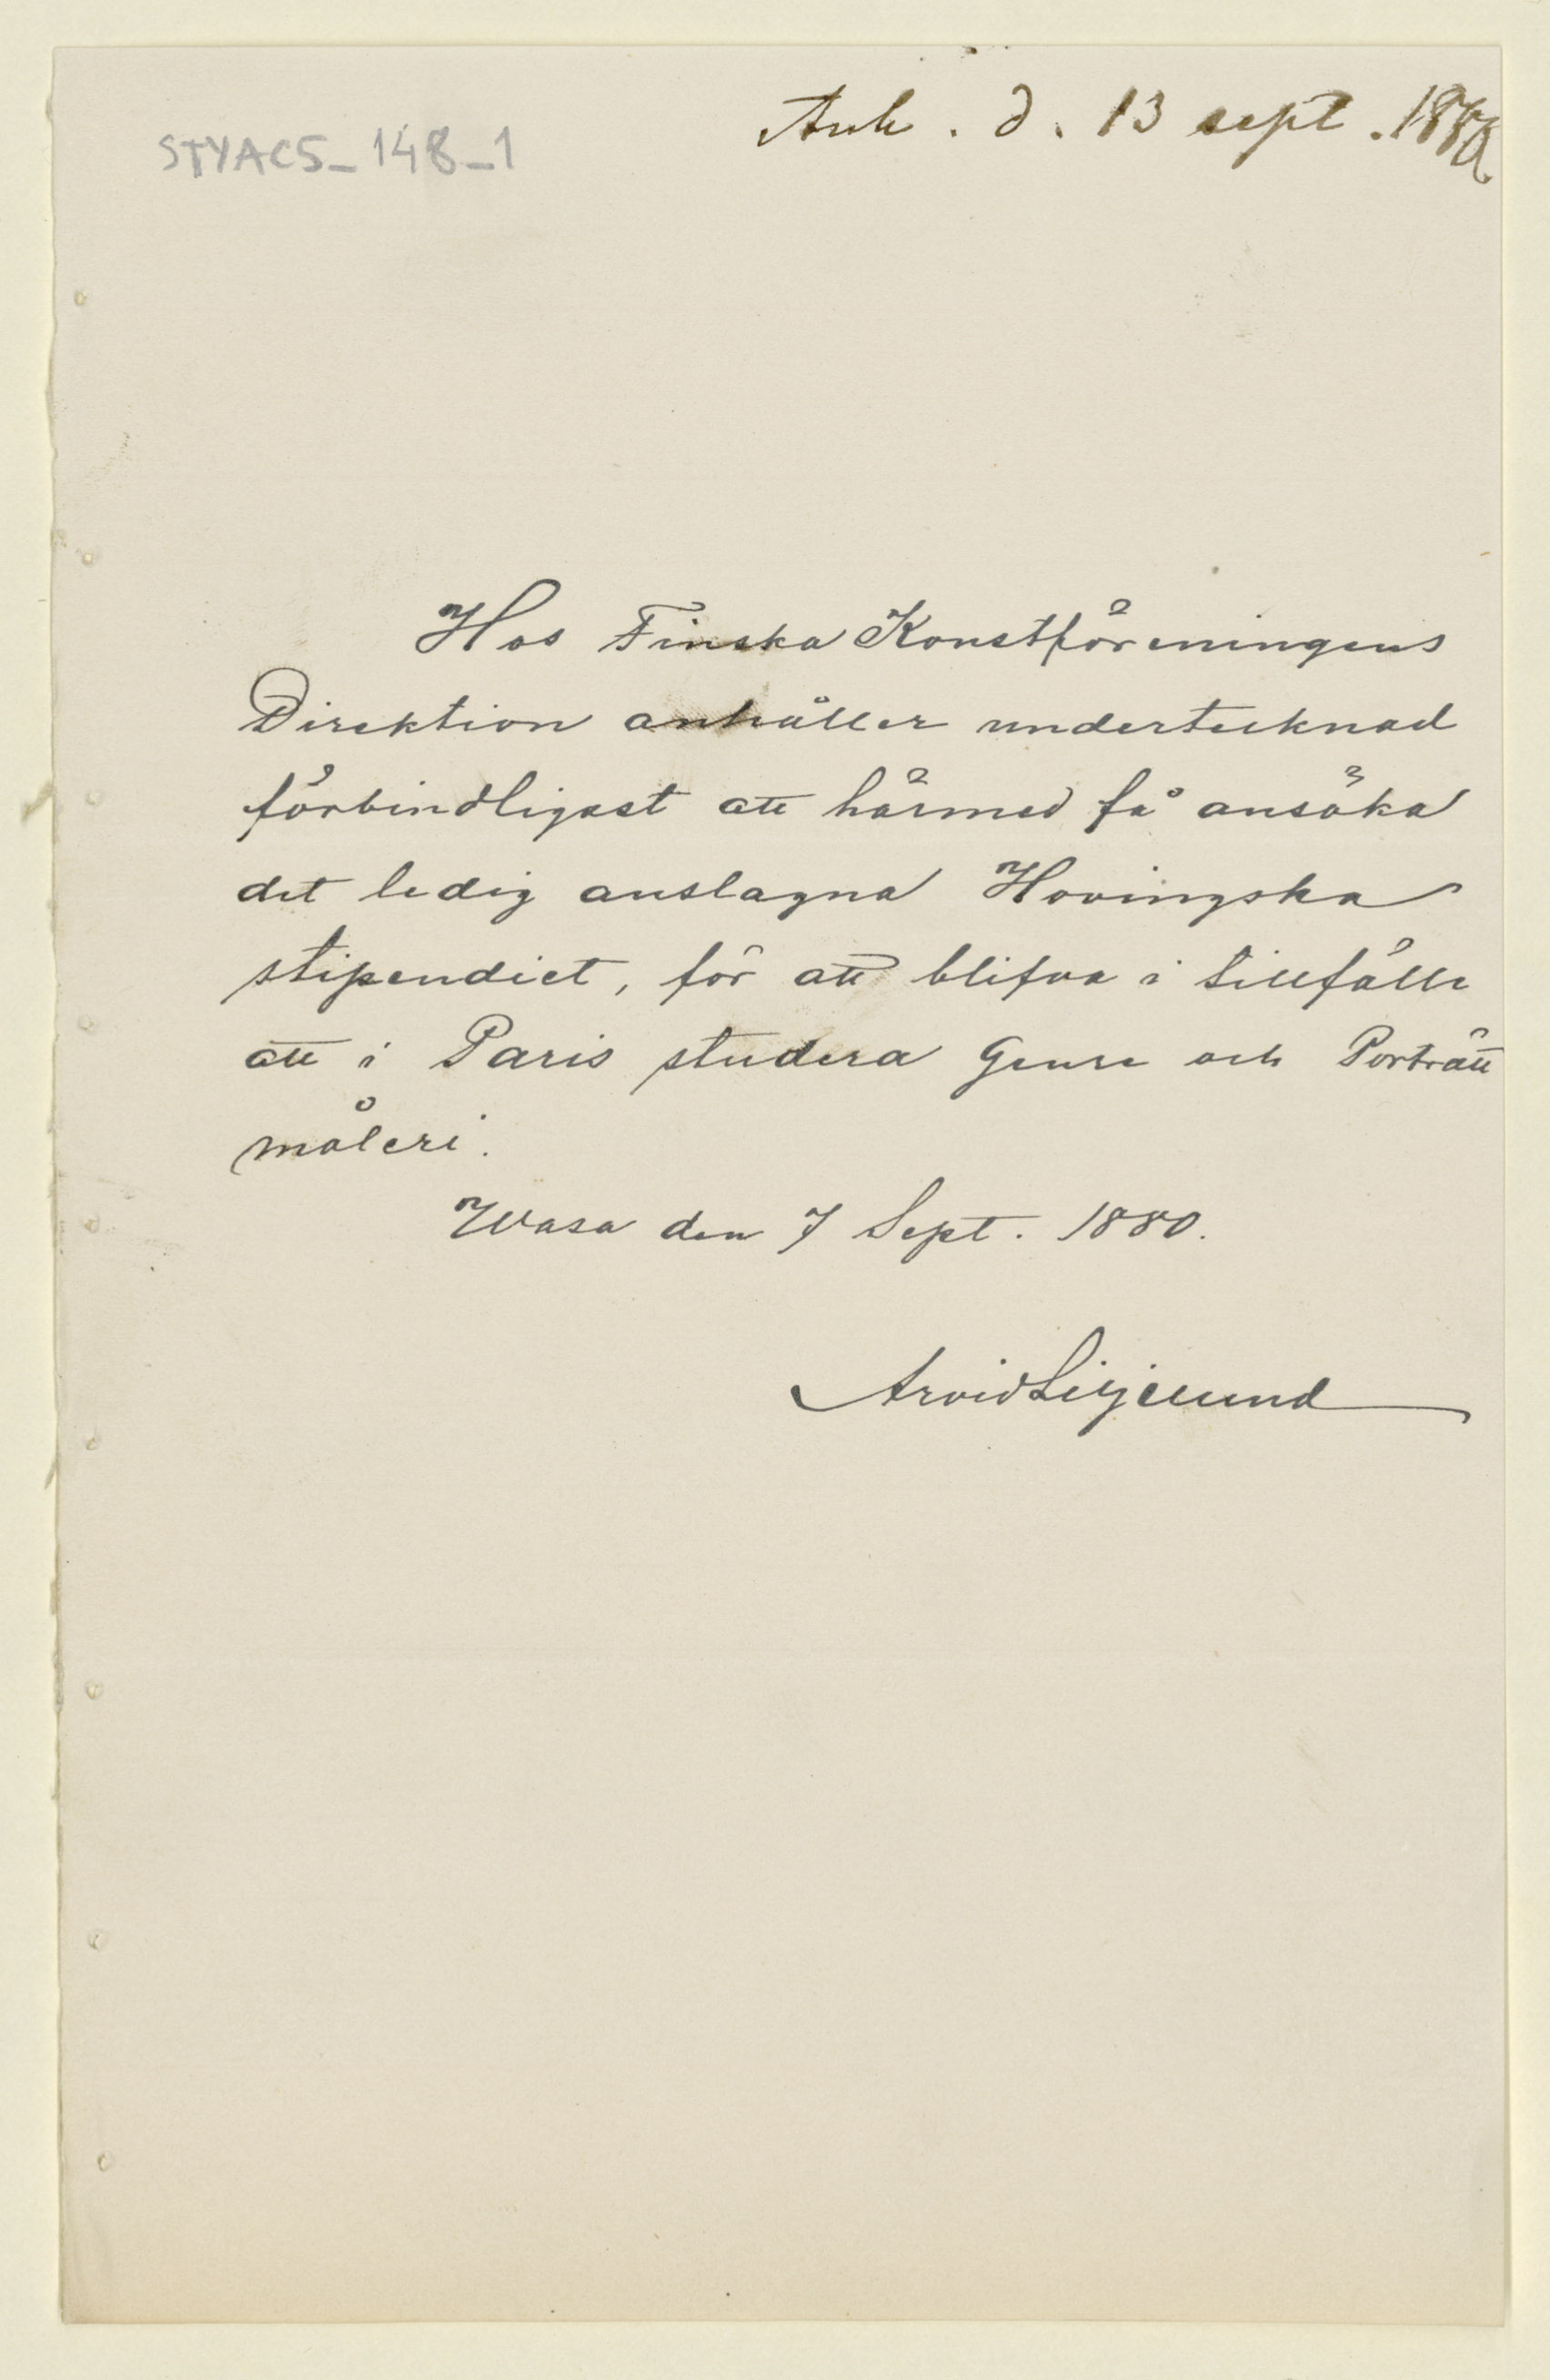 Ank. d. 13 sept. 1880
STYAC5_148_1
Hos Finska Konstföreningens
Direktion anhåller undertecknad
förbindligast att härmed få ansöka
det ledig anslagna Hovingska
stipendiet, för att blifva i tillfälle
att i Paris studera Genre och Porträtt
måleri.
Wasa den 7 Sept. 1880.
Arvid Liljelund